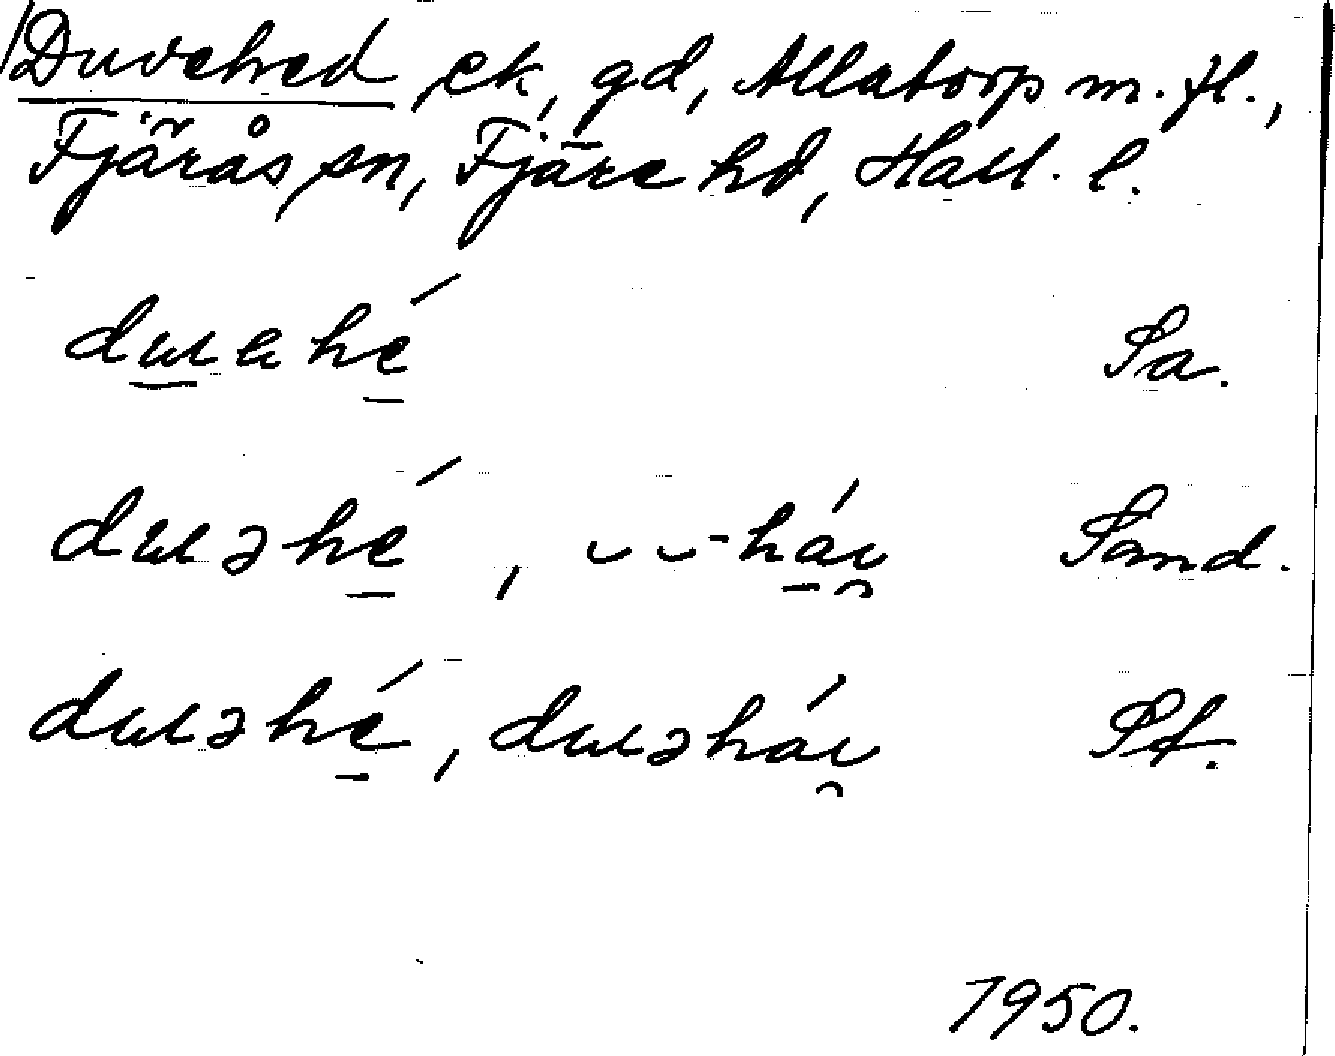 Duvehed, ek, gd, Allatorp m. fl.,
Fjärås sn, Fjäre hd, Hall. l.
duɩahé Sa.
duɩəhé, ᴗᴗ-háɩ Sand.
duɩəhé, duɩəháɩ Sf.
1950.